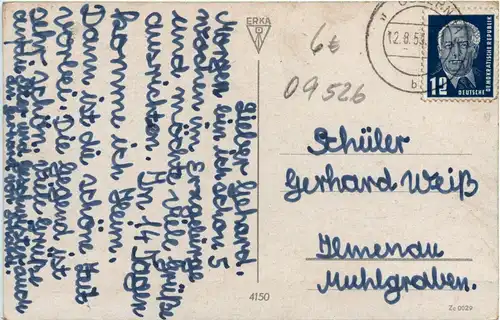 Lieber Gerhard.
Nun bin ich schon 5
Wochen im Erzgebirge
und möchte viele Grüße
ausrichten. In 14 Tagen
komme ich Heim.
Dann ist die schöne Zeit
vorbei. Die Gegend ist
sehr schön. Viele Grüße
ERKA
6€
09526
12.8.53
b
DEUTSCHE
DEMOKRATISCHE REPUBLIK
12
Schüler
Gerhard Weiß
Ilmenau
Muhlgraben.
4150
Zc 0029